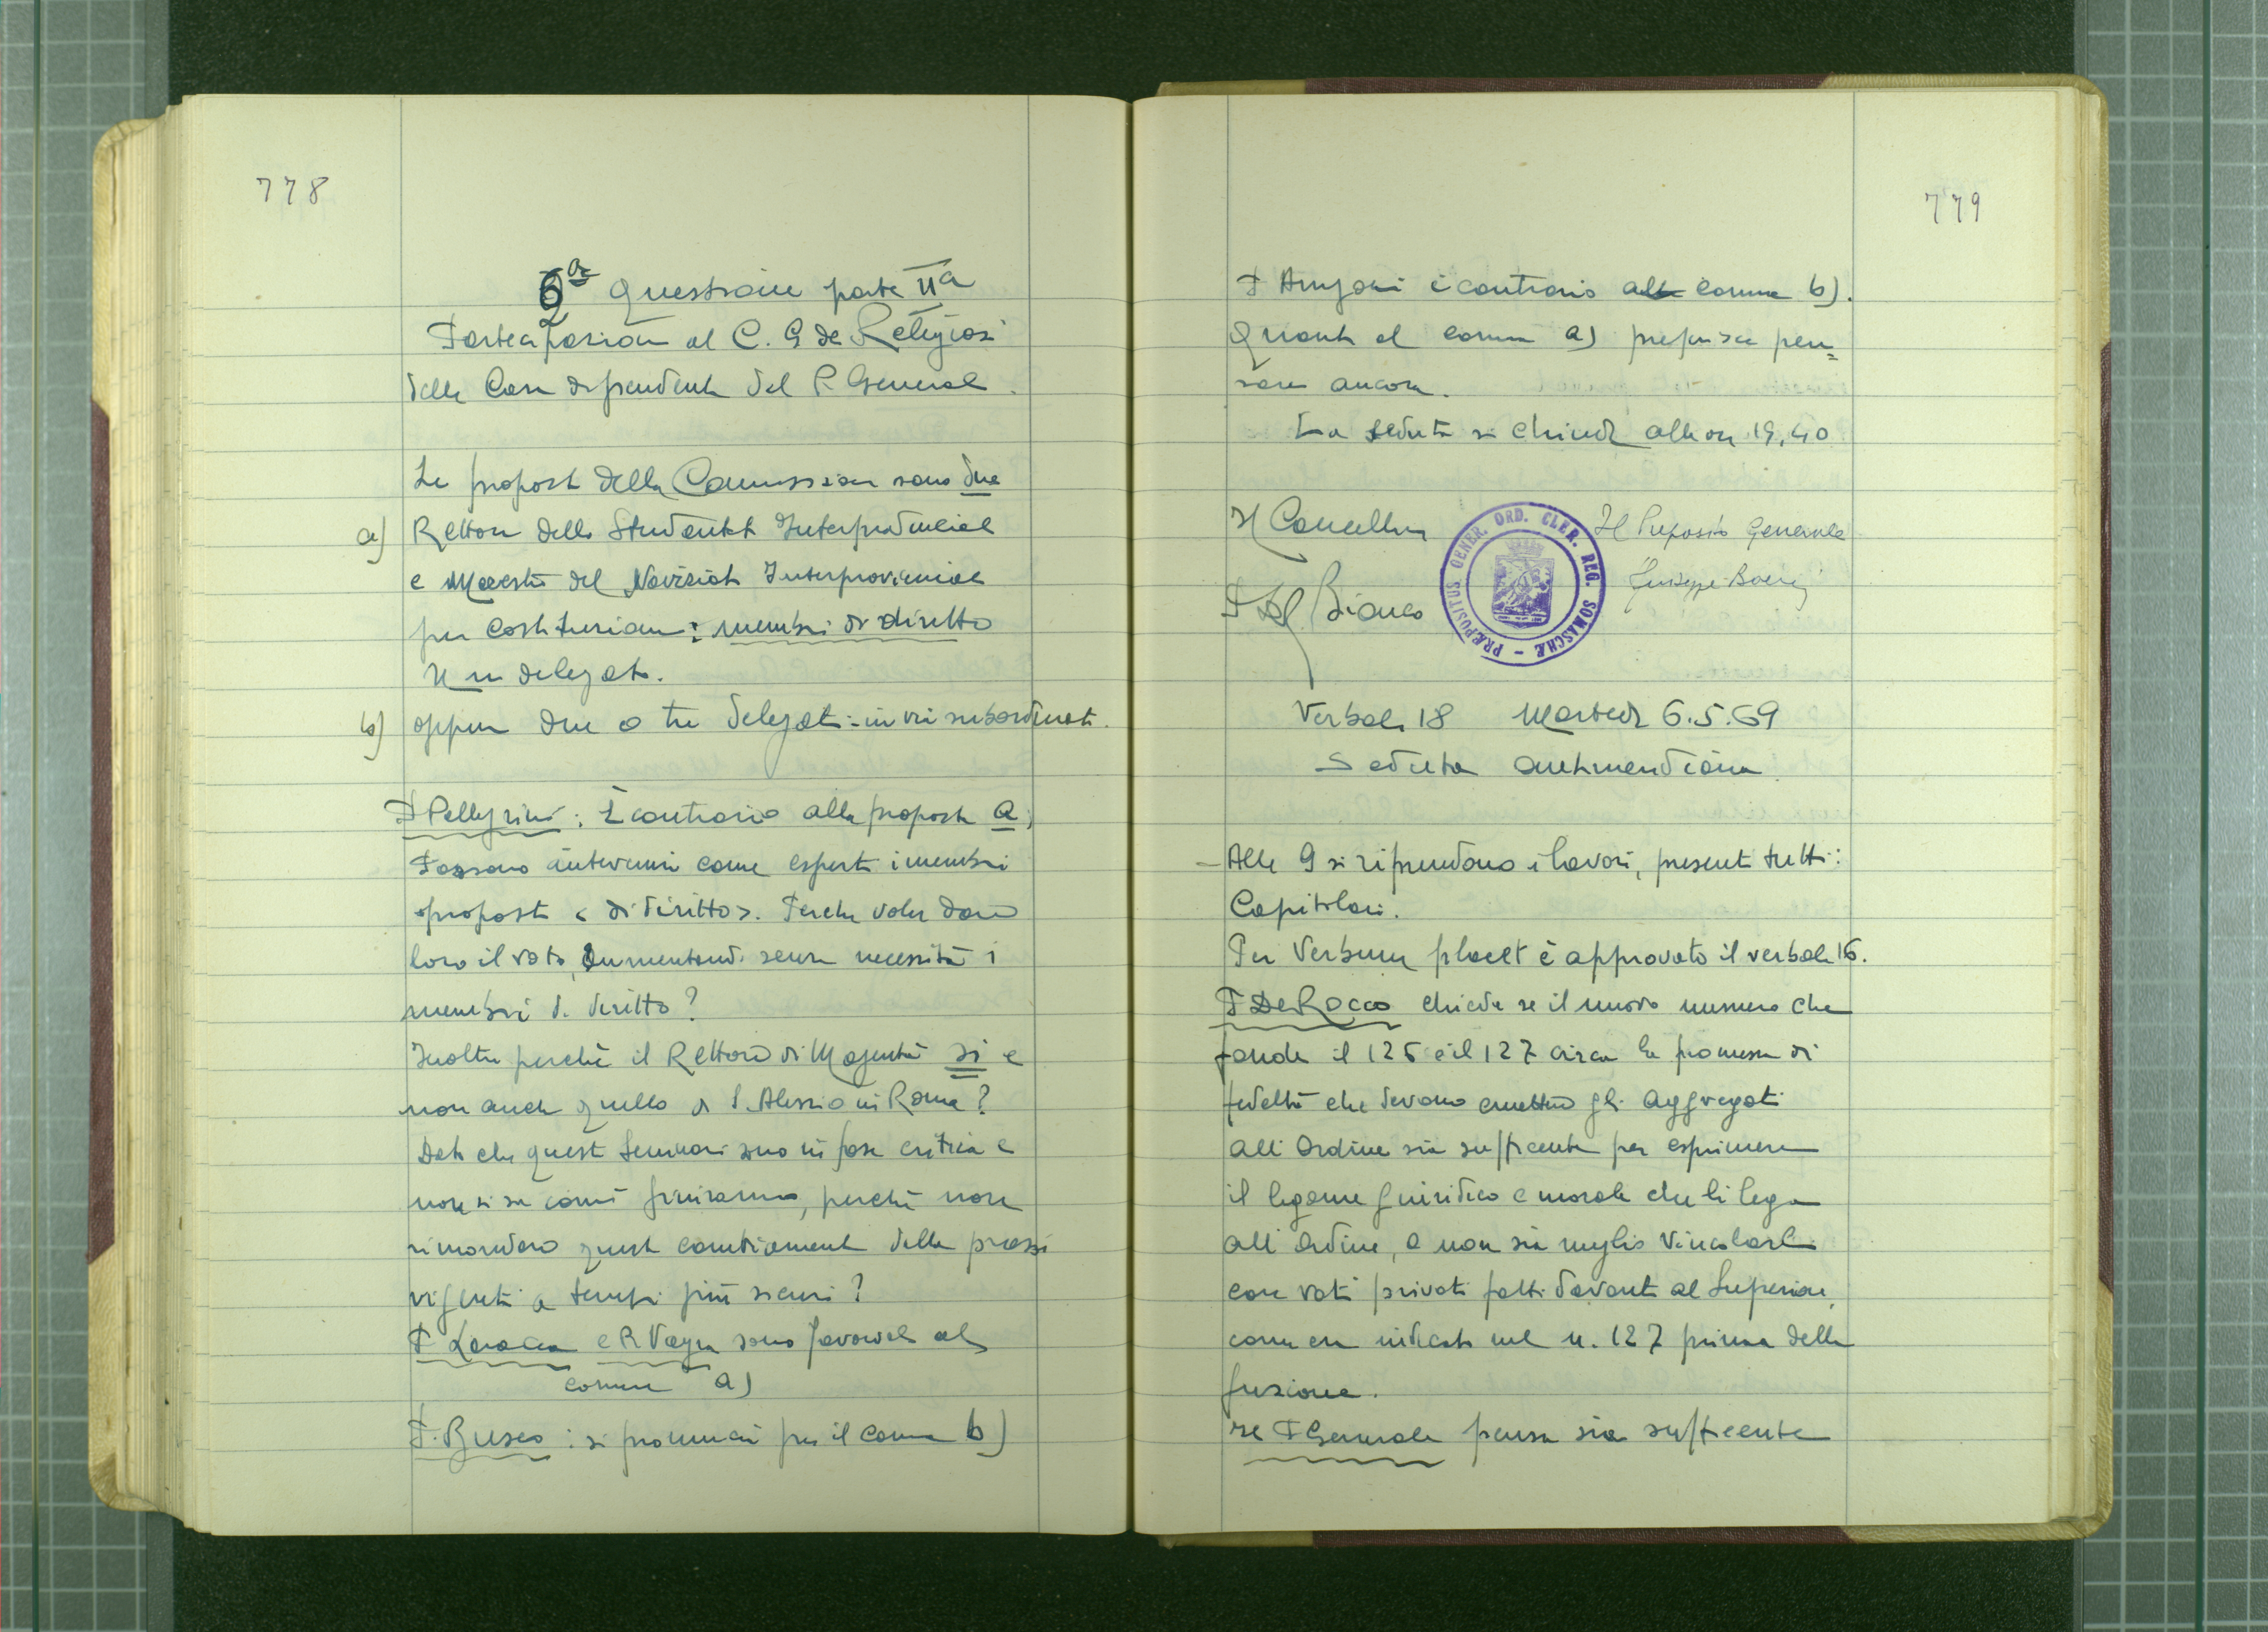 778
6a Questione parte IIa
Partecipazione al C. G de Religiosi
delle Case dipendenti dal P. Generale.
Le proposte della Commissione sono due
a) Rettore dello Studentato Interprovinciale
e Maestro del Noviziato Interprovinciale
per costituzione: membri di diritto
Un delegato.
b) oppure due o tre delegati: in via subordinata.
P Pellegrini: È contrario alla proposta a;
Possono intervenire come esperti i membri
proposti < di diritto >. Perche voler dare
loro il voto, aumentando senza necessità i
membri di diritto?
Inoltre perchè il Rettore di Magenta si e
non anche quello di S. Alessio in Roma?
Dato che questi Seminari sono in fase critica e
non si sa come finiranno, perchè non
rimandare questi cambiamenti della prassi
vigente a tempi più sicuri?
P Laracca e P. Vaga sono favorevoli al
comma a)
P. Busco: si pronuncia per il comma b)
779
P Arrigoni è contrario al comma b).
Quanto al comma a) preferisce pen=
sare ancora.
La seduta si chiude alle ore 19,40
Il Cancelliere
Il Preposito Generale
P Del Bianco
Giuseppe Boeris
PRÆPOSITUS GENER. ORD. CLER. REG. SOMASCHÆ
Verbale 18 Martedì 6.5.69
Seduta antimeridiana
- Alle 9 si riprendono i lavori, presenti tutti i
Capitolari.
Per Verbum placet è approvato il verbale 16.
P De Rocco chiede se il nuovo numero che
fonde il 126 e il 127 circa la promessa di
fedeltà che devono emettere gli Aggregati
all Ordine sia sufficente per esprimere
il legame giuridico e morale che li lega
all Ordine, o non sia meglio vincolarli
con voti privati fatti davanti al Superiore,
come era indicato nel n. 127 prima della
fusione.
Il P Generale pensa sia sufficente